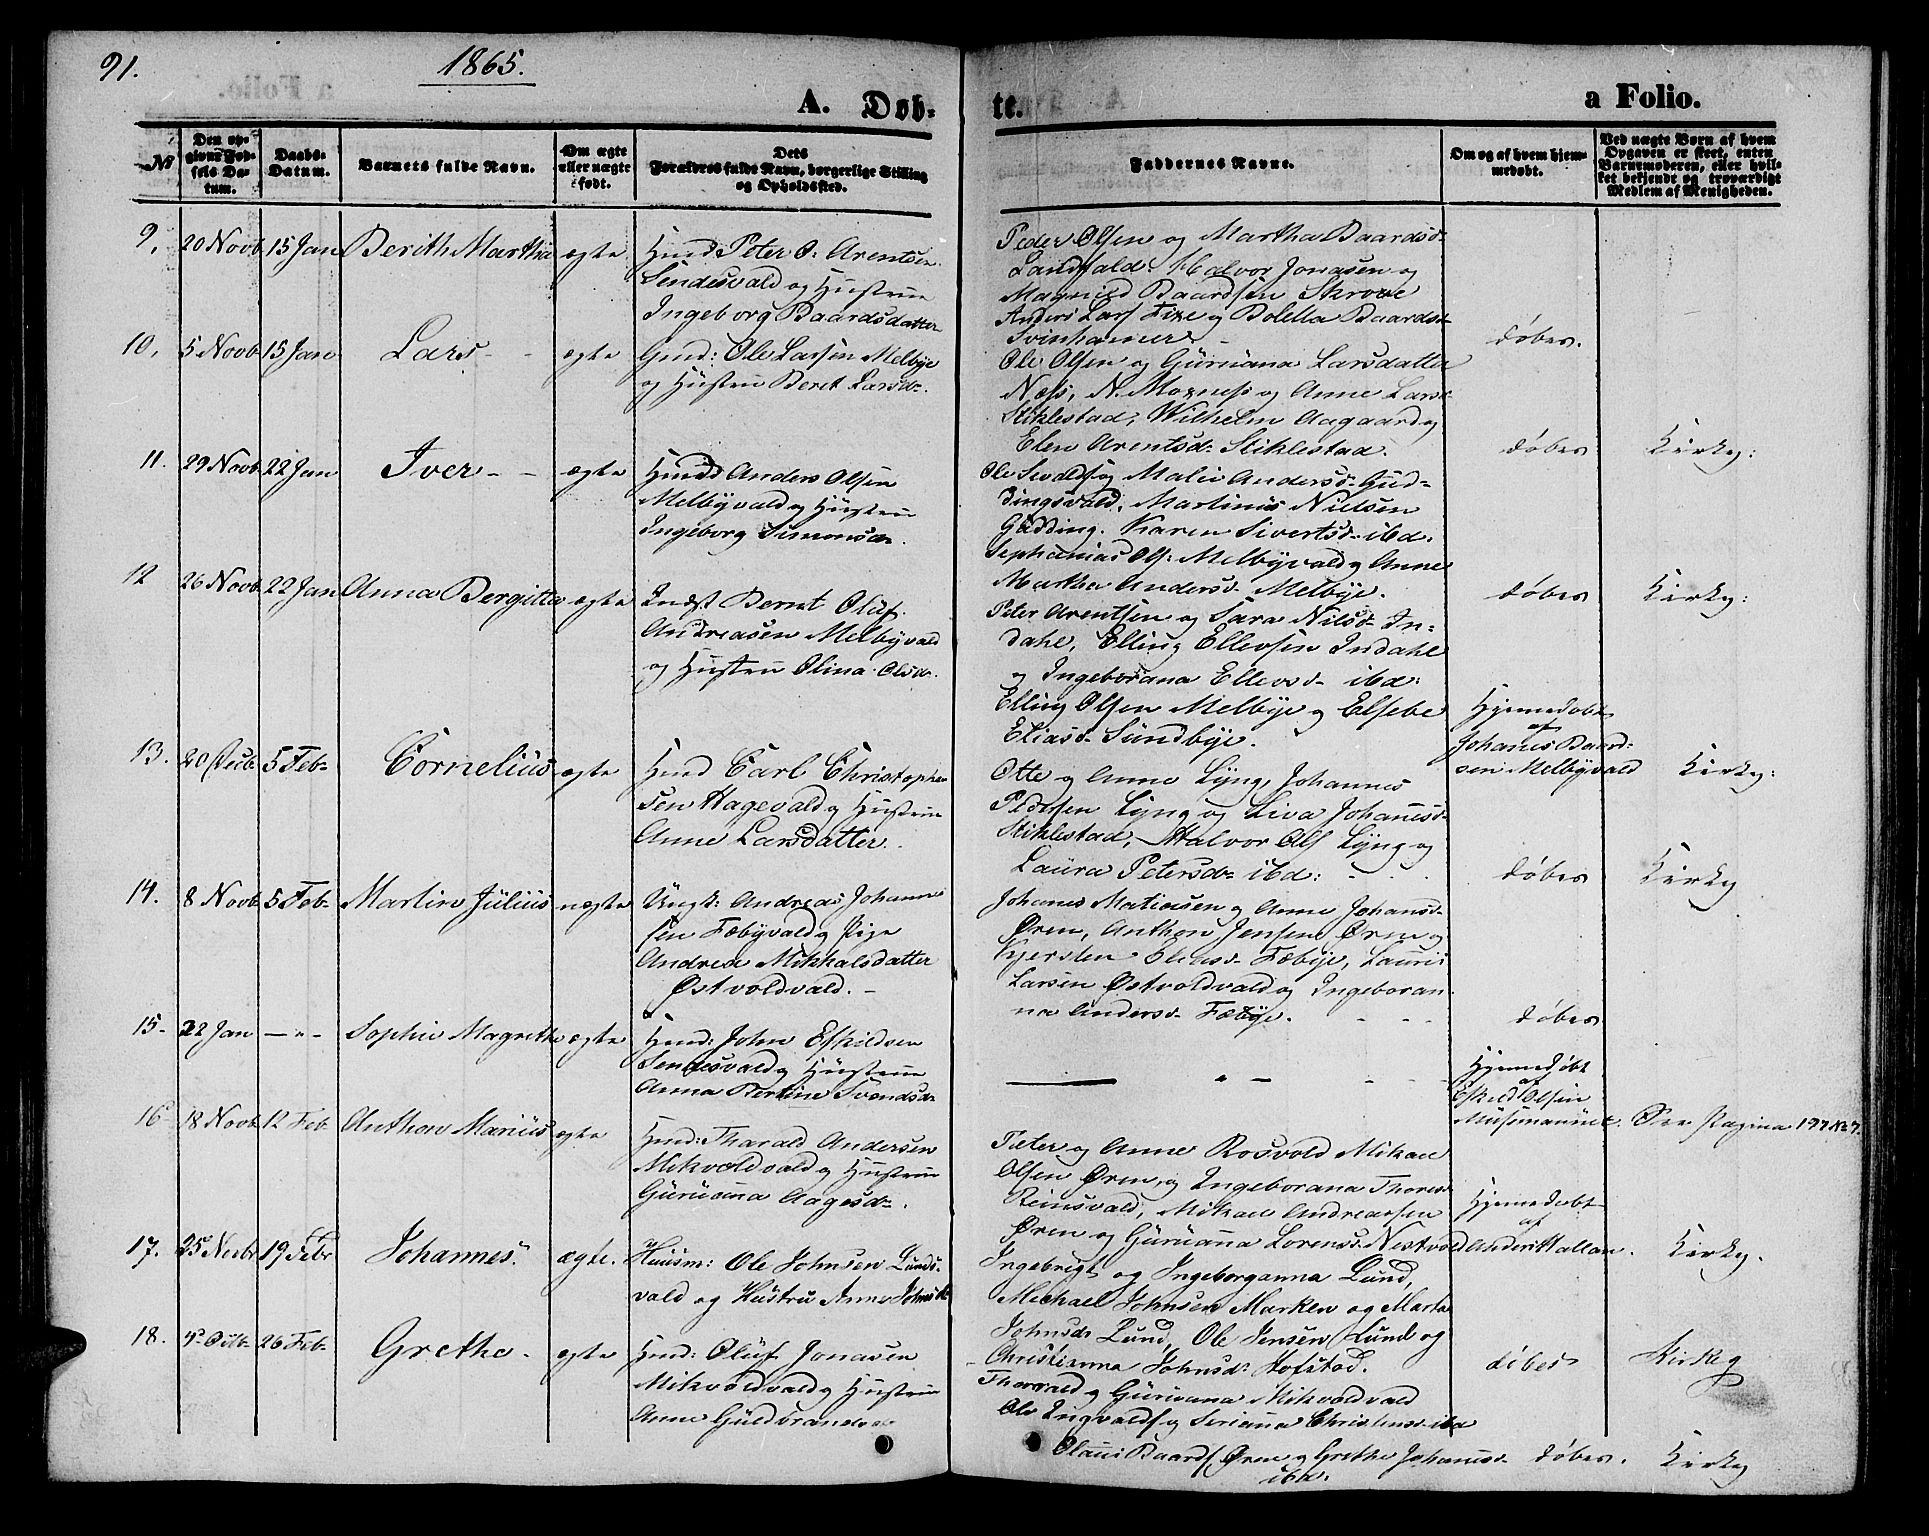 91.
1865.
A. Døb-
te.
a Folio.
No
Den op-
givne Fød-
sels Da-
tum.
Daabs-
Datum.
Barnets fulde Navn.
Om ægte
eller uægte
født.
Dets
Forældres fulde Navn, borgerlige Stilling
og Opholdssted.
Faddernes Navne.
Om og af hvem hjem-
medøbt.
Ved uægte Børn af hvem
Opgaven er skeet, enten
Barnemoderen, eller hvil-
ket bekjendt og troværdigt
Medlem af Menigheden.
9. 20 Novb 15 Jan Berith Martha ægte Hmd Peter O: Arentsen
Sendesvald og Hustrue
Ingeborg Baardsdatter
Peder Olsen og Martha Baardsd-
Landfald. Halvor Jonasen og
Magnild Baardsen Skrove
Anders Lars Fixe og Boletta Baardsd-
Svinhamer -
døbes.
10. 5 Novb 15 Jan Lars - - ægte Gmd: Ole Larsen Melbye
og Hustru Beret Larsd-.
Ole Olsen og Guruana Larsdatter
Næss, N. Moxness og Anne Larsd-
Stiklestad, Wilhelm Aagaard og
Elen Arentsd- Stiklestad.
døbes Kirkg:
11. 29 Novb 22 Jan Iver - - ægte Hmd Anders Olsen
Melbyvald og Hustrue
Ingeborg Simonsd-.
Ole og Malie Andersd- Gud-
dingsvald, Martinus Nielsen
Gudding. Karen Sivertsd- ibd.
Sephanias Ols: Melbyvald og Anne
Martha Andersd- Melbye.
døbes Kirkg:
12 26 Novb 22 Jan Anna Bergitta ægte Indst Bernt Oluf
Andreasen Melbyvald
og Hustru Olina Olsd-.
Peter Arentsen og Sara Nilsd- In-
dahl, Elling Ellevsen Indahl
og Ingeborana Ellevsd- ibd:
Elling Olsen Melbye og Elsebe
Eliasd- Sundbye.
Hjemedøbt
af
Johanes Baard-
sen Melbyvald Kirkg:
13. 20 Decb 5 Feb- Cornelius ægte Hmd Carl Christopher
sen Hagevald og Hustrue
Anne Larsdatter.
Otte og Anne Lyng, Johannes
Pedersen Lyng og Liva Johanesd-
Stiklestad, Halvor Ols Lyng og
Laura Petersd- ibd:
døbes Kirkg
14. 8 Novb 5 Feb- Martin Julius uægte Ungk: Andreas Johanne
sen Fæbyvald og Pige
Andrea Mikkalsdatter
Østvoldvald. -
Johanes Matiasen og Anne Johansd-
Øren, Anthon Jensen Øren og
Kjersten Eliasd- Fæbye, Lauris
Larsen Østvoldvald og Ingeboran-
na Andersd- Fæbye.
døbes
15- 22 Jan - " - Sophie Magrethe ægte Hmd: John Eskildsen
Sendesvald og Hustrue
Anna Bertine Svendsd-
- " -
Hjemedøbt
af
Eskild Olsen
Musumannet. See Pagina 197 No 7.
16 18 Novb 12 Feb Anthon Marius ægte Hmd: Tharald Andersen
Mikvoldvald og Hustrue
Guruana Aagesd-.
Peter og Anne Rosvold Mikael
Olsen Øren, og Ingeborana Thoresd-
Reinsvald, Mikael Andreassen
Øren og Guruanna Lorensd- Nestvold
Hjemedøbt
af
Anders Hallan. Kirkg.
17. 25 Novbr 19 Febr Johannes. ægte. Huusm: Ole Johnsen Lunds-
vald og Hustru Anne Johnsd-
Ingebrigt og Ingeborganna Lund,
Michael Johnsen Marken og Marta
Johnsd: Lund, Ole Jensen Lund og
Christianna Johnsd: Hofstad.
døbes Kirkeg
18. 26 Feb- Grethe - ægte Hmd: Oluf Jonasen
Mikvoldvald og Hustrue
Anne Guldbrandsd-
Thorvald og Guruana Mikvoldvald
Ole Ingvalds og Seriana Christensd- ibd
Olaus Baards Øren og Grethe Johanesd-
ibd.
døbes. Kirkg